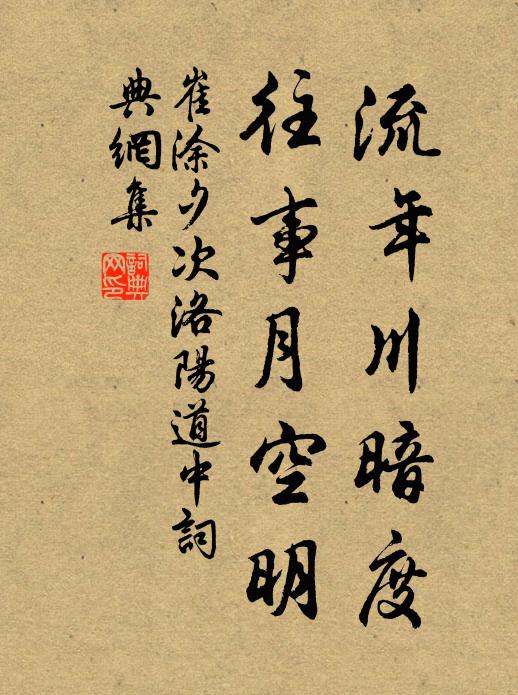 流年川暗度
往事月空明
崔涂夕次洛陽道中詞
典網集
詞典
网印